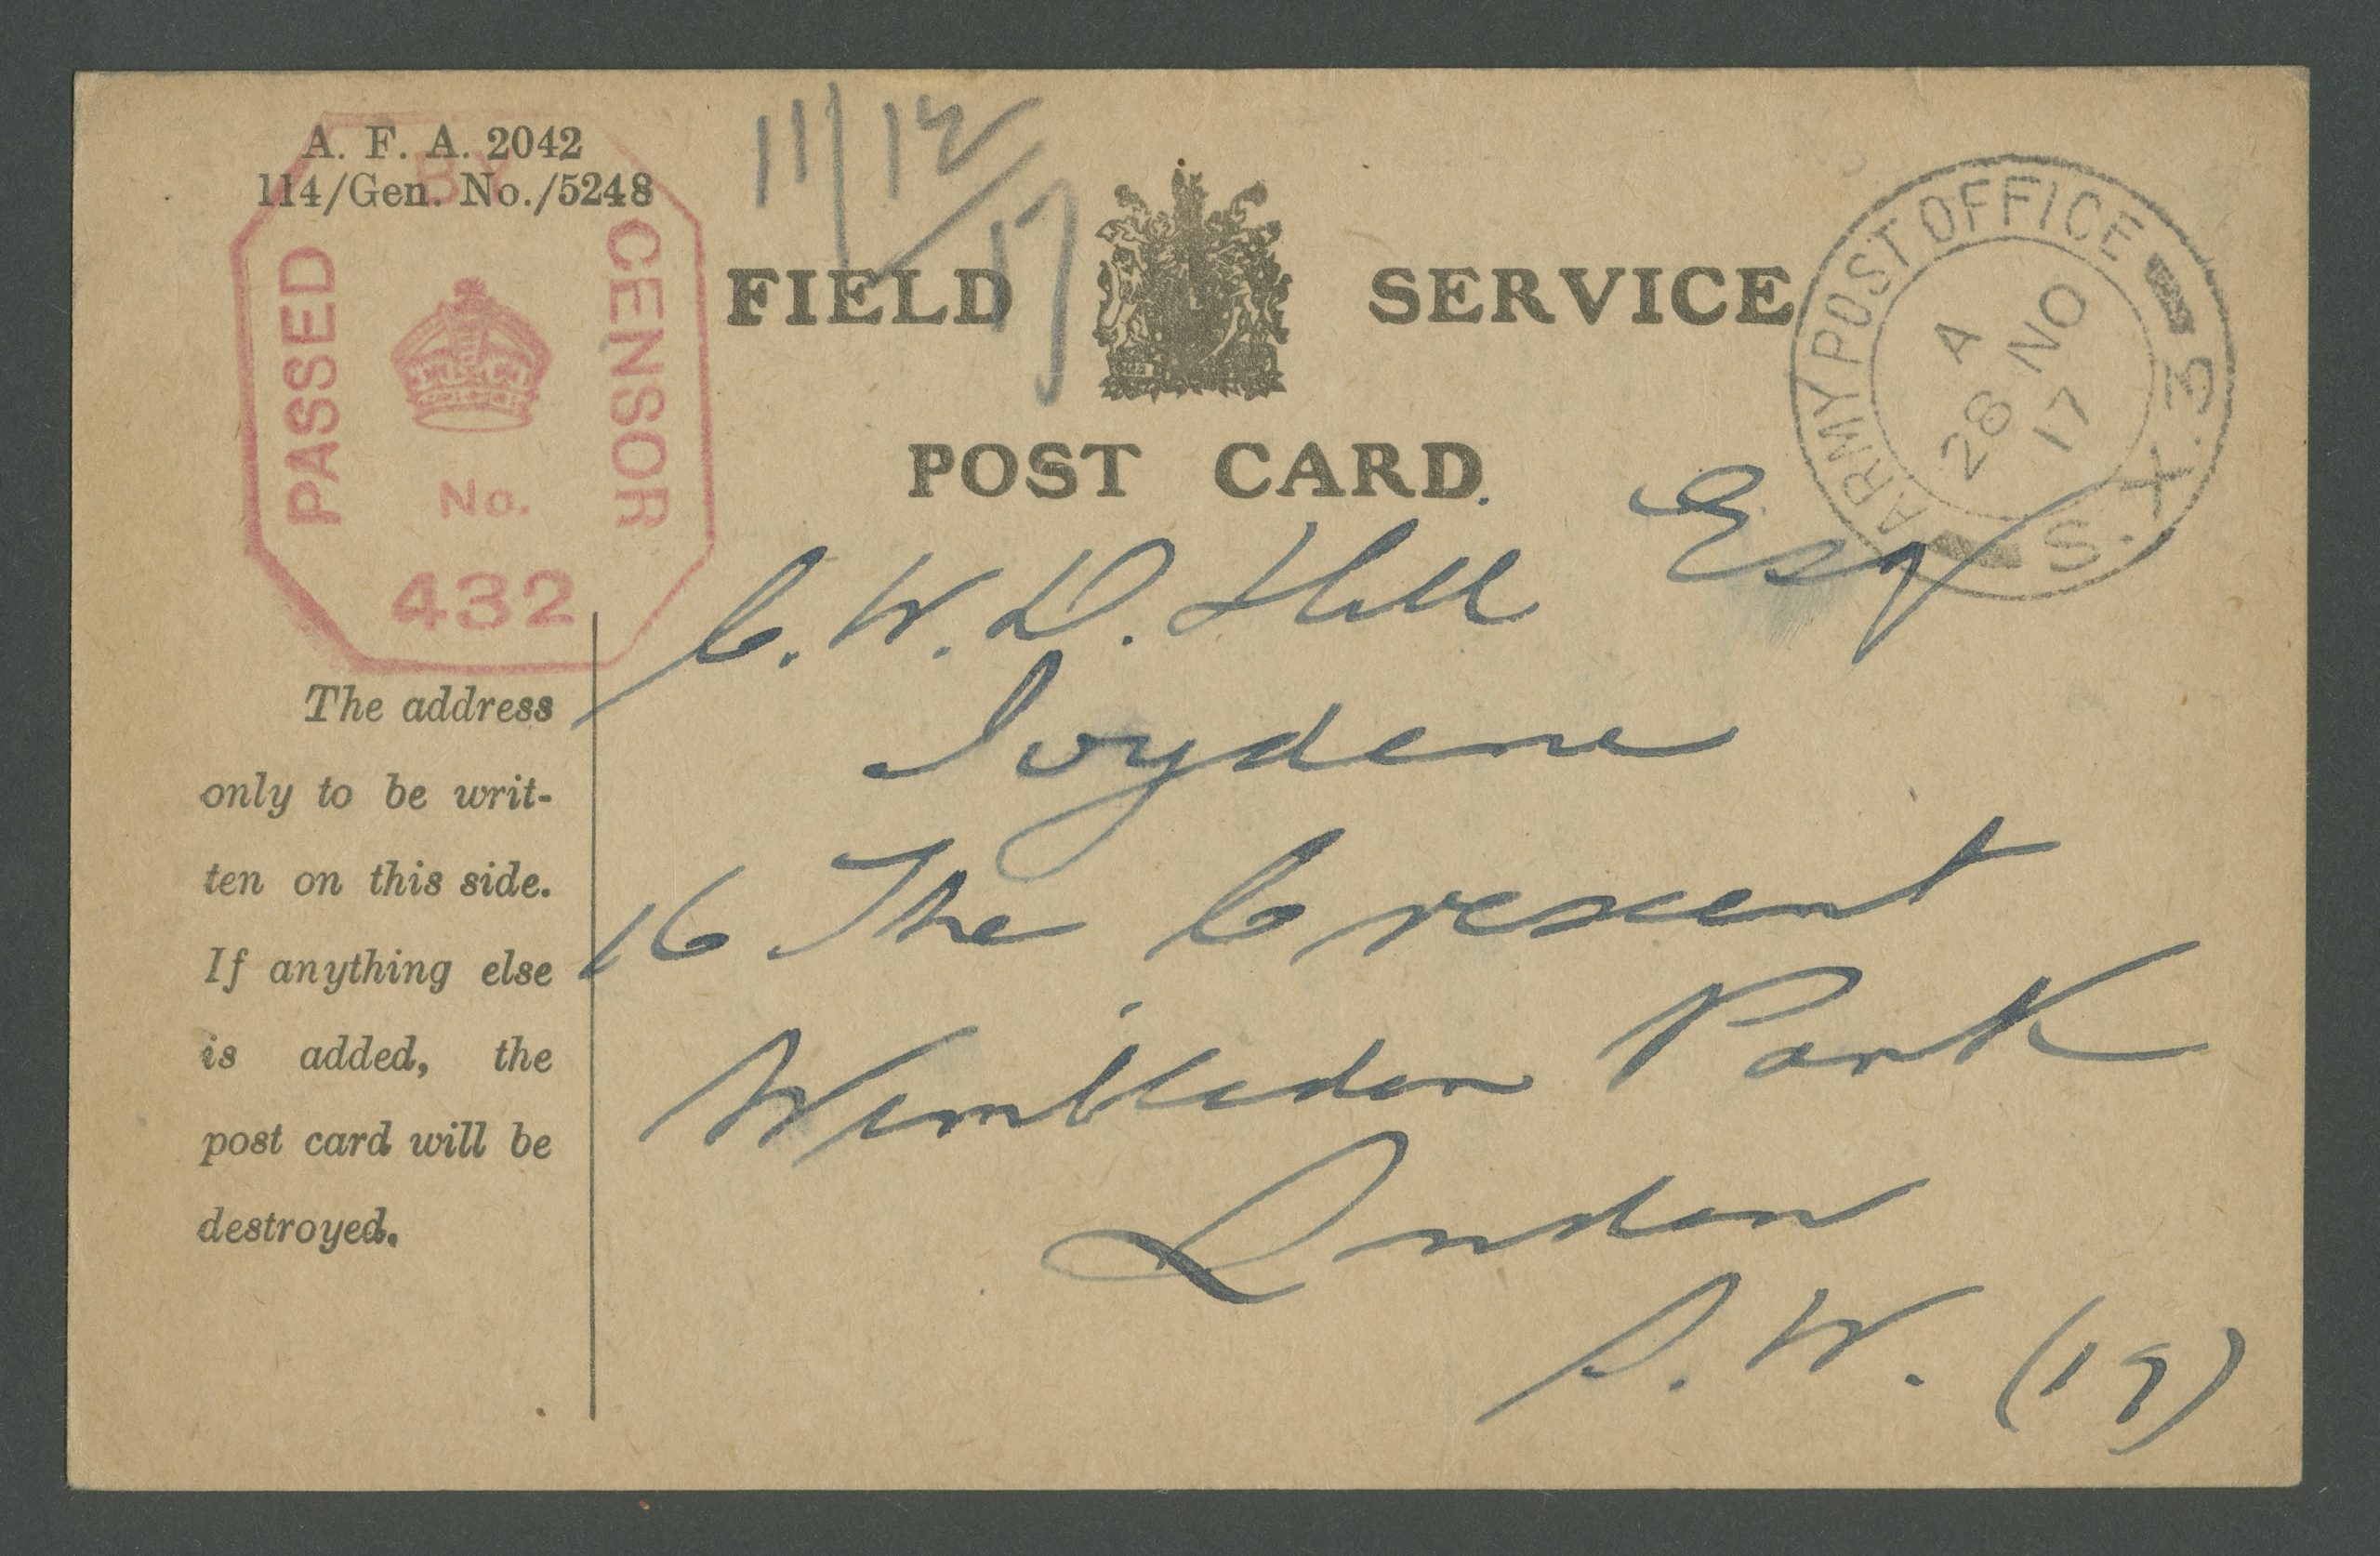 A. F. A. 2042
114/Gen. No./5248
PASSED BY CENSOR
No.
432
11/12/17
FIELD SERVICE
POST CARD.
ARMY POST OFFICE
A
28 NO
17
S.X.3
C. W. D. Hill Esq
Ivydene
16 The Crescent
Wimbledon Park
London
S. W. (19)
The address
only to be writ-
ten on this side.
If anything else
is added, the
post card will be
destroyed.